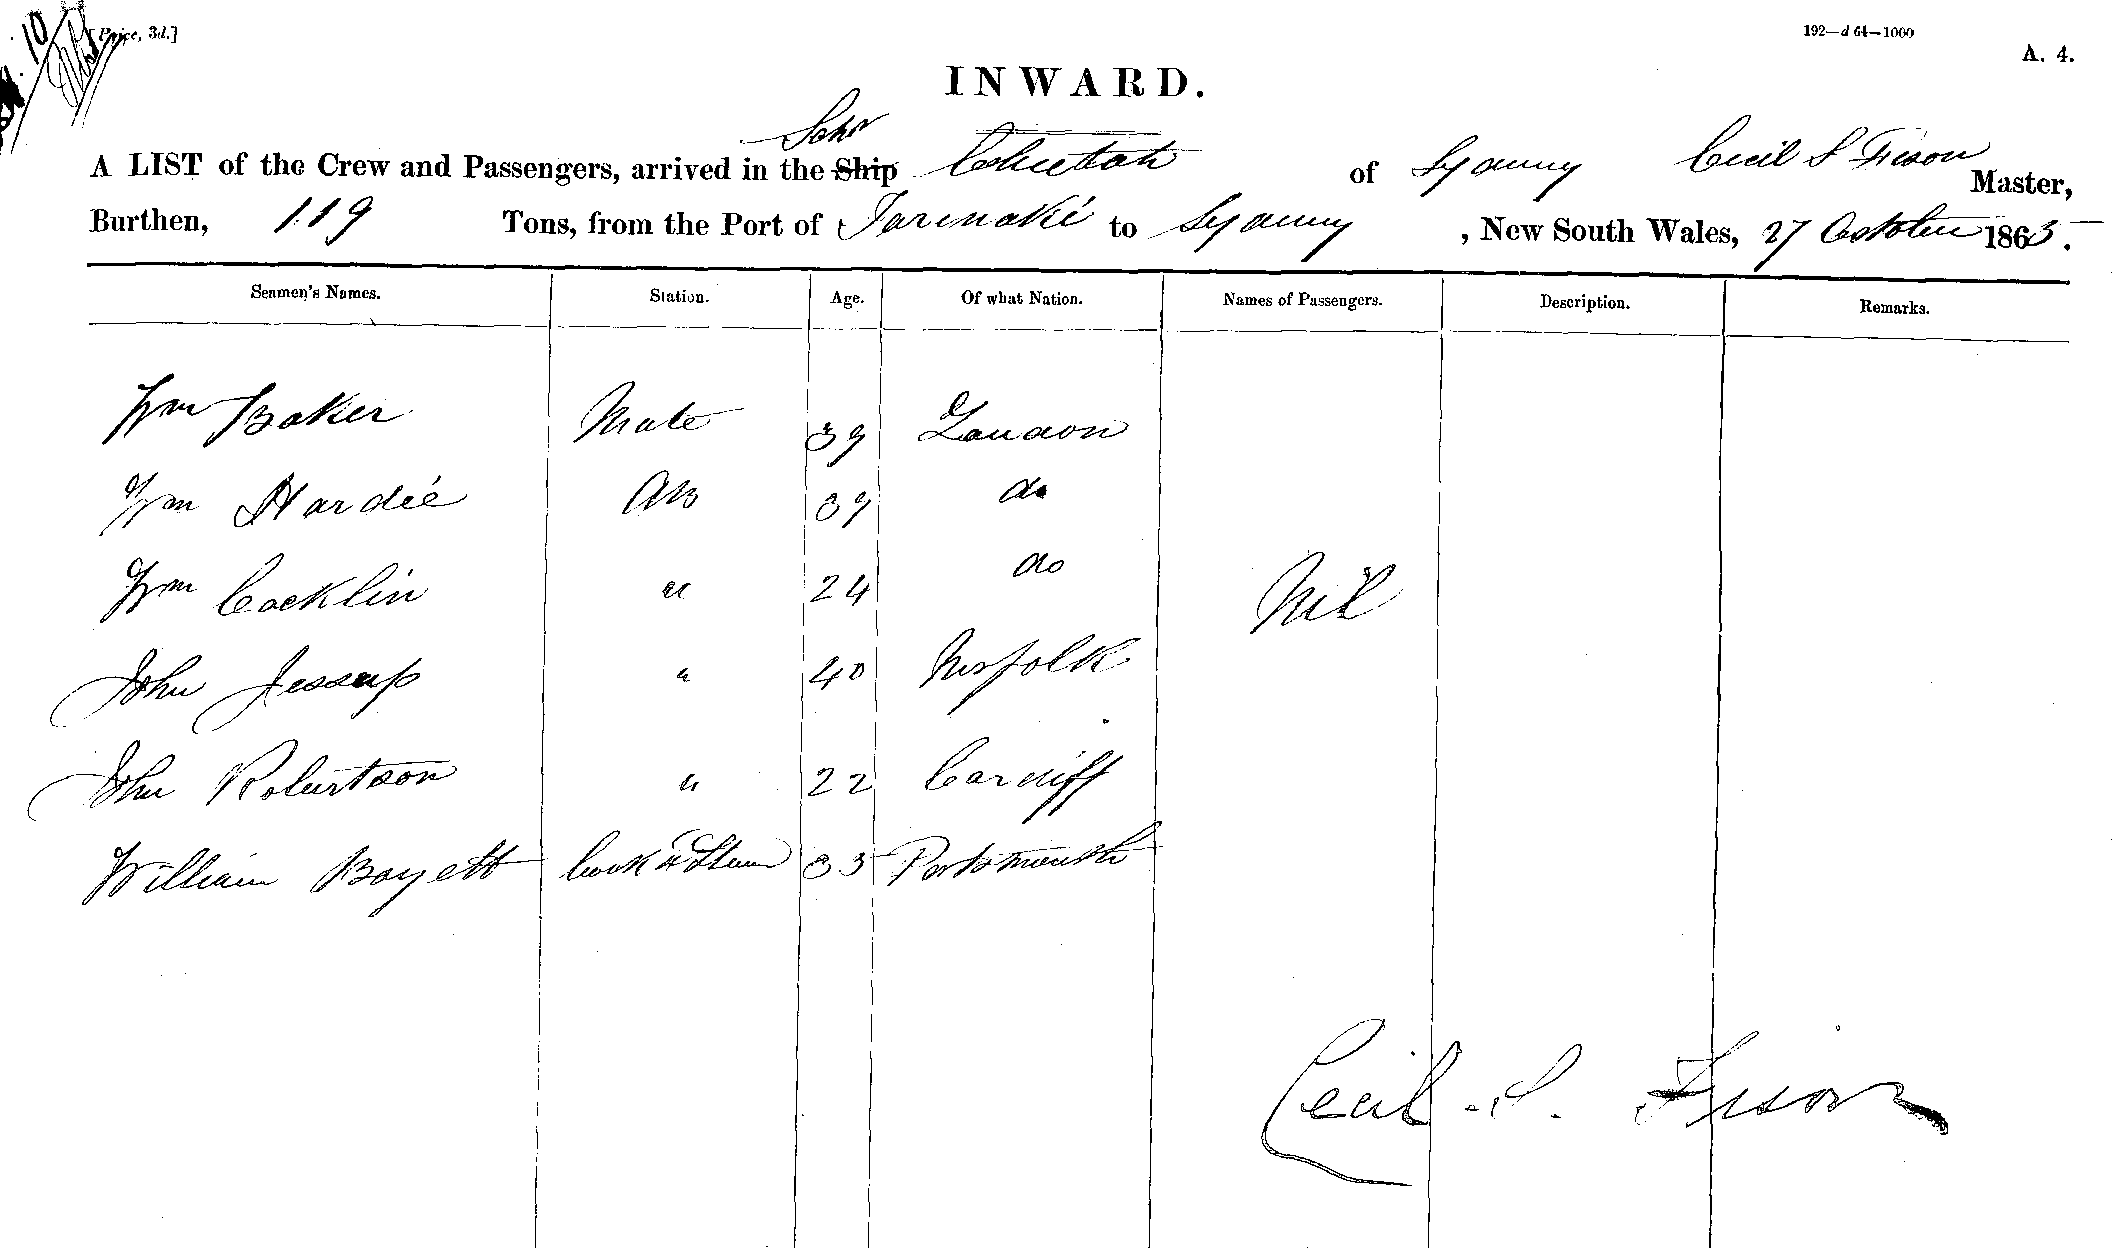 [Price, 3d.]
192—d 64—1000
A. 4.
INWARD.
Schr
A LIST of the Crew and Passengers, arrived in the Ship Cheetah of Sydney Cecil S Fison Master,
Burthen, 119 Tons, from the Port of Taranaki to Sydney, New South Wales, 27 October 1865.
Seamen's Names. Station. Age. Of what Nation. Names of Passengers. Description. Remarks.
Wm Baker Mate 39 London
Wm Hardie AB 39 do
Wm Cocklin " 24 do Nil
John Jessup " 40 Norfolk
John Robertson " 22 Cardiff
William Boyett Cook & Stew 33 Portsmouth
Cecil S. Fison